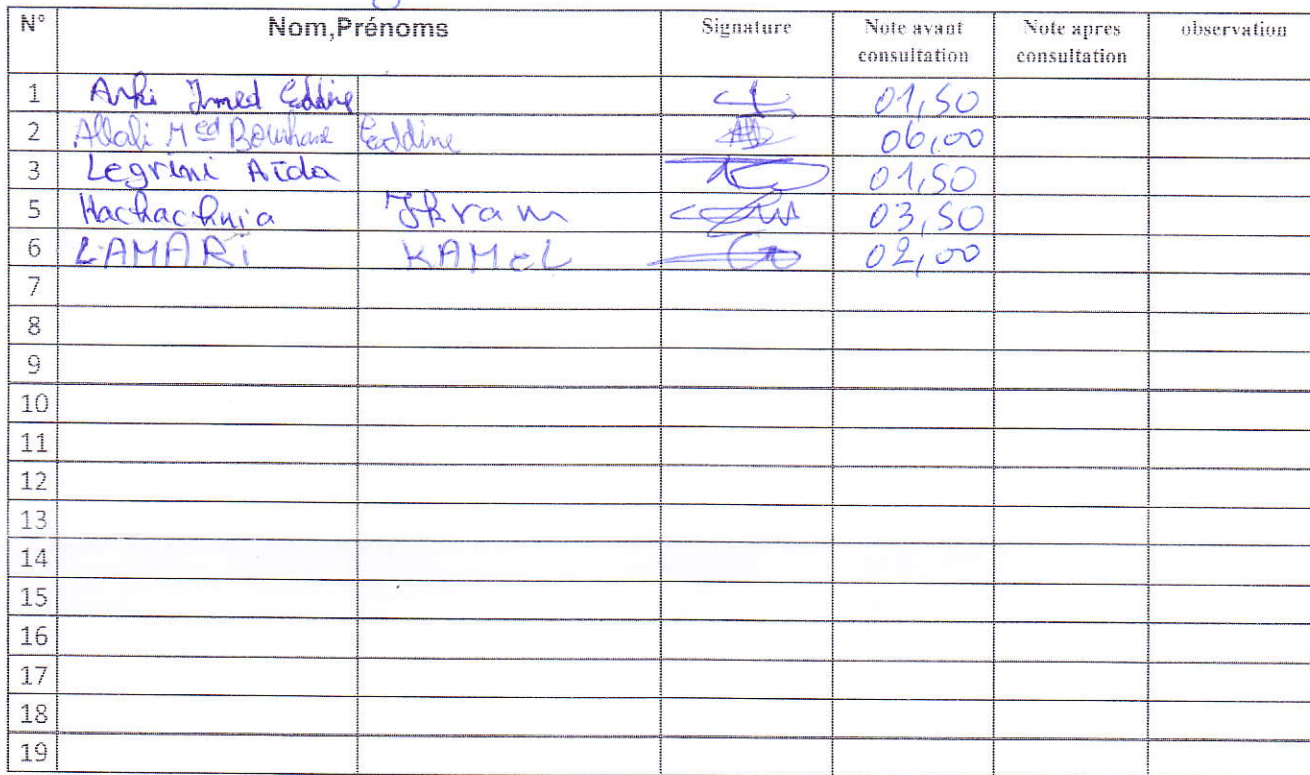 N° Nom,Prénoms Signature Note avant consultation Note apres consultation observation
1 Arki Imed Eddine 01,50
2 Allali Med Bourhane Eddine 06,00
3 Legrini Aïda 01,50
5 Hachachnia Ikram 03,50
6 LAMARi KAMEL 02,00
7
8
9
10
11
12
13
14
15
16
17
18
19